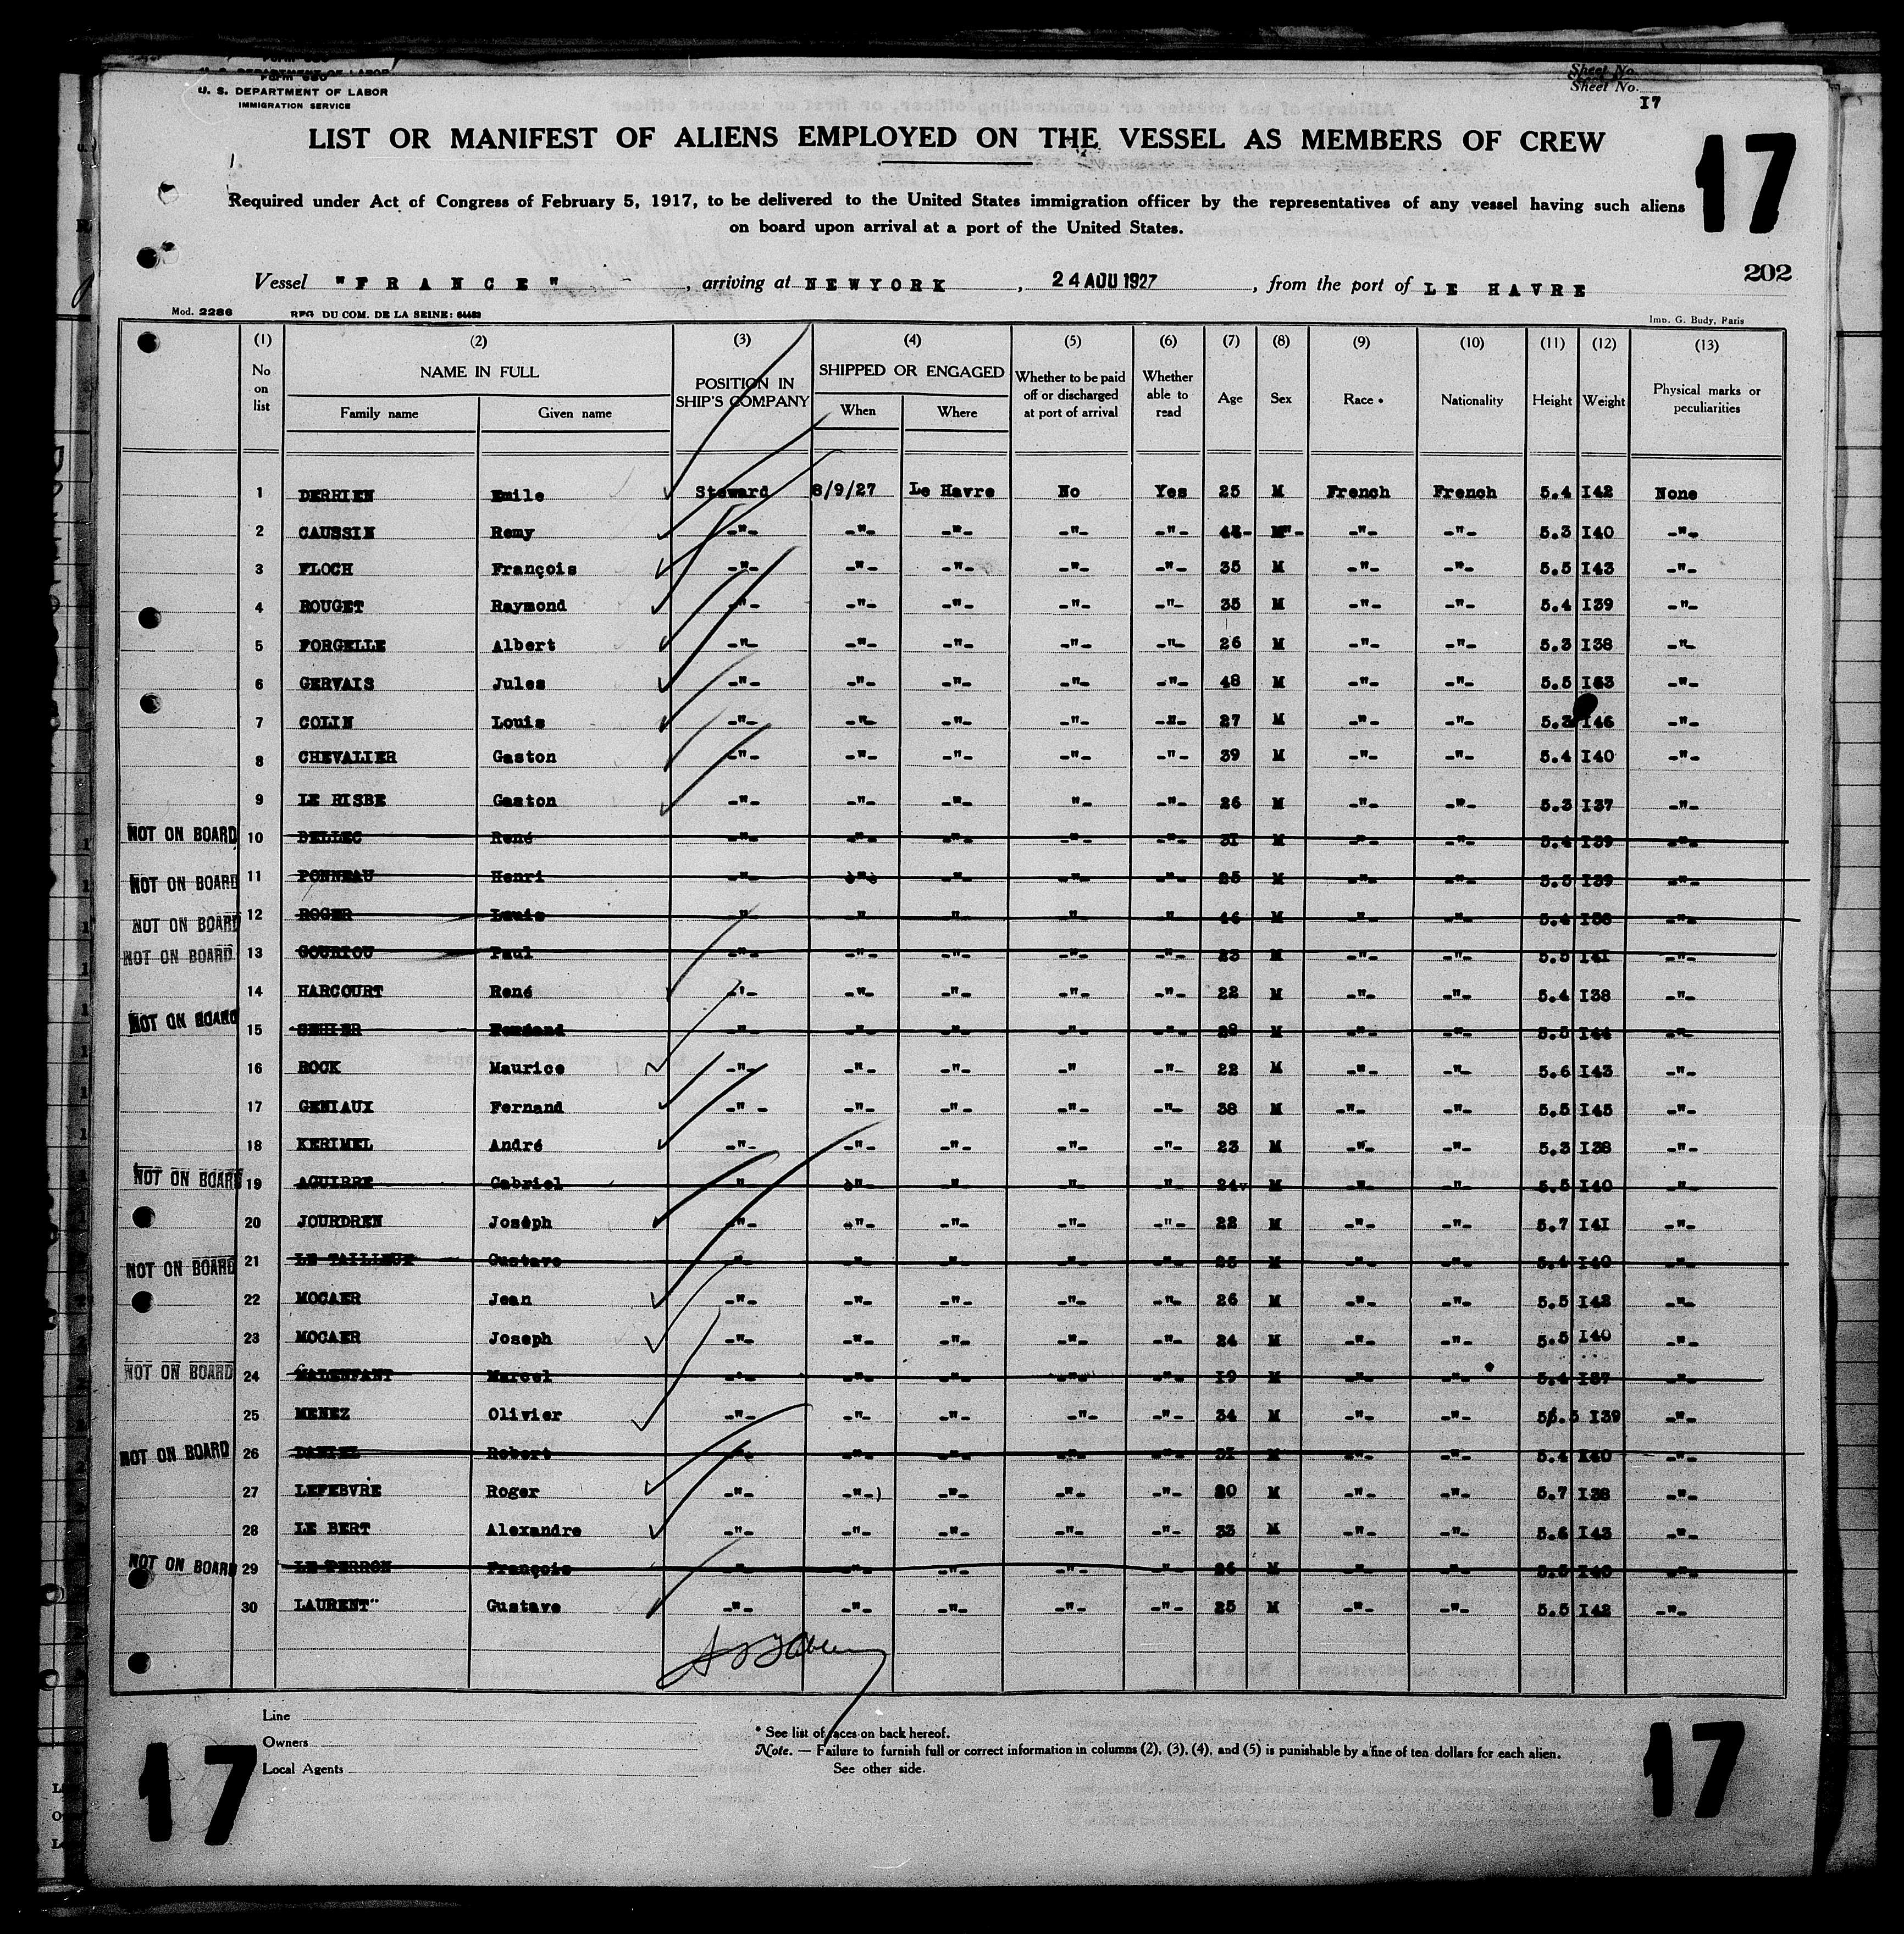 Form 680
U. S. DEPARTMENT OF LABOR
IMMIGRATION SERVICE
Sheet No.
Sheet No. I7
LIST OR MANIFEST OF ALIENS EMPLOYED ON THE VESSEL AS MEMBERS OF CREW
17
Required under Act of Congress of February 5, 1917, to be delivered to the United States immigration officer by the representatives of any vessel having such aliens
on board upon arrival at a port of the United States.
202
Vessel "FRANCE", arriving at NEWYORK, 24 AOU 1927, from the port of LE HAVRE
Mod. 2286 REG DU COM. DE LA SEINE: Imp. G. Budy, Paris
(1) No on list (2) NAME IN FULL Family name Given name (3) POSITION IN SHIP'S COMPANY (4) SHIPPED OR ENGAGED When Where (5) Whether to be paid off or discharged at port of arrival (6) Whether able to read (7) Age (8) Sex (9) Race * (10) Nationality (11) Height (12) Weight (13) Physical marks or peculiarities
1 DERRIEN Emile Steward 8/9/27 Le Havre No Yes 25 M French French 5.4 I42 None
2 CAUSSIN Remy -"- -"- -"- -"- -"- M -"- -"- 5.3 I40 -"-
3 FLOCH François -"- -"- -"- -"- -"- 35 M -"- -"- 5.5 I43 -"-
4 ROUGET Raymond -"- -"- -"- -"- -"- 35 M -"- -"- 5.4 I39 -"-
5 FORGELLE Albert -"- -"- -"- -"- -"- 26 M -"- -"- 5.3 I38 -"-
6 GERVAIS Jules -"- -"- -"- -"- -"- 48 M -"- -"- 5.5 -"-
7 COLIN Louis -"- -"- -"- -"- -"- 27 M -"- -"- 5.3 I46 -"-
8 CHEVALIER Gaston -"- -"- -"- -"- -"- 39 M -"- -"- 5.4 I40 -"-
9 LE HISBE Gaston -"- -"- -"- "- -"- 26 M -"- -"- 5.3 I37 -"-
NOT ON BOARD 10 BELLEC René -"- -"- -"- -"- -"- 3I M -"- -"- 5.4 I39 -"-
NOT ON BOARD 11 PONNEAU Henri -"- -"- -"- -"- -"- 25 M -"- -"- 5.5 I39 -"-
NOT ON BOARD 12 ROGER Louis -"- -"- -"- -"- -"- 46 M -"- -"- 5.4 I38 -"-
NOT ON BOARD 13 GOURIOU Paul -"- -"- -"- -"- -"- 23 M -"- -"- 5.5 I4I -"-
14 HARCOURT René -"- -"- -"- -"- -"- 22 M -"- -"- 5.4 I38 -"-
NOT ON BOARD 15 SEHIER Fernand -"- -"- -"- -"- -"- M -"- -"- 5.5 I44 -"-
16 ROCK Maurice -"- -"- -"- -" -"- 22 M -"- -"- 5.6 I43 -"-
17 GENIAUX Fernand -"- -"- -"- -"- -"- 38 M -"- -"- 5.5 I45 -"-
18 KERIMEL André -"- -"- -"- -"- -"- 23 M -"- -"- 5.3 I38 -"-
NOT ON BOARD 19 AGUIRRE Gabriel -"- -"- -"- -"- -"- 24 M -"- -"- 5.5 I40 -"-
20 JOURDREN Joseph -"- -"- -"- -"- -"- 22 M -"- -"- 5.7 I4I -"-
NOT ON BOARD 21 LE TAILLEUR Gustave -"- -"- -"- -"- -"- 25 M -"- -"- 5.4 I40 -"-
22 MOCAER Jean -"- -"- -"- -"- -"- 26 M -"- -"- 5.5 I42 -"-
23 MOCAER Joseph -"- -"- -"- -"- -"- 24 M -"- -"- 5.5 I40 -"-
NOT ON BOARD 24 MALENFANT Marcel -"- -"- -"- -"- -"- I9 M -"- -"- 5.4 I37 -"-
25 MENEZ Olivier -"- -"- -"- -"- -"- 34 M -"- -"- I39 -"-
NOT ON BOARD 26 DANIEL Robert -"- -"- -"- -"- -"- 3I M -"- -"- 5.4 I40 -"-
27 LEFEBVRE Roger -"- -"-) -"- -"- -"- 20 M -"- -"- 5.7 I38 -"-
28 LE BERT Alexandre -"- -"- -"- -"- -"- 33 M -"- -"- 5.6 I43 -"-
NOT ON BOARD 29 LE PERRON François -"- -"- -"- -"- -"- 26 M -"- -"- 5.5 I40 -"-
30 LAURENT Gustave -"- -"- -"- -"- -"- 25 M -"- -"- 5.5 I42 -"-
Line
Owners
Local Agents
* See list of races on back hereof.
Note. — Failure to furnish full or correct information in columns (2), (3), (4), and (5) is punishable by a fine of ten dollars for each alien.
See other side.
17
17